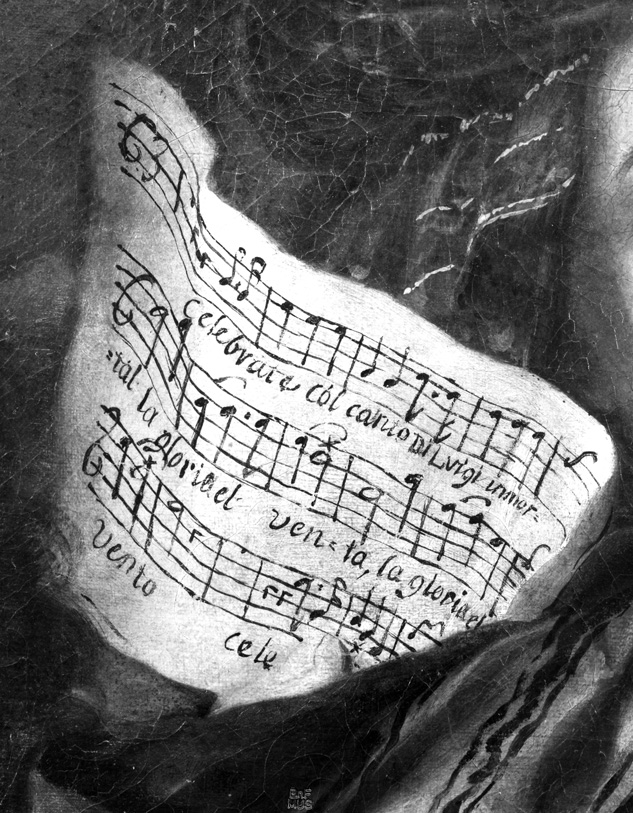 celebrate col canto Di Luigi immor=
=tal la gloria el ven=tà, la gloria el
vento
cele
BnF
MUS